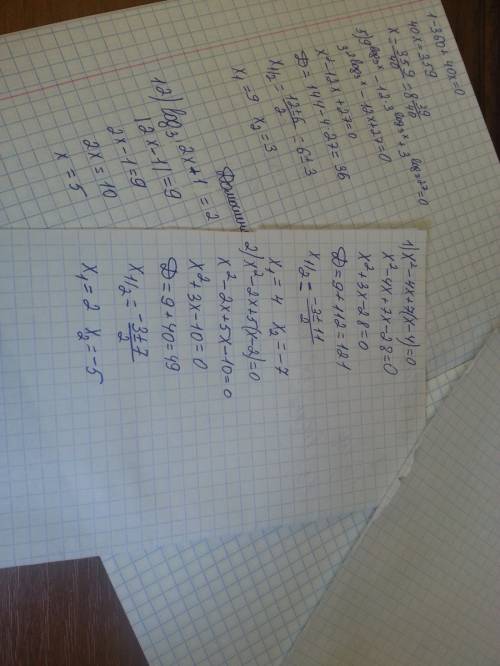 1-360+40x=0
40x=359
x=359/40=8 39/40
5) 9^log₉x -12·3^log₃x + 3^log₃27=0
3^2log₃x -12x+27=0
x²-12x+27=0
D=144-4·27=36
x₁/₂=12±6/2=6±3
x₁=9 x₂=3
12) log₃ |2x-1|=2
|2x-1|=9
2x-1=9
2x=10
x=5
1) x²-4x+7(x-4)=0
x²-4x+7x-28=0
x²+3x-28=0
D=9+112=121
x₁/₂=-3±11/2
x₁=4 x₂=-7
2) x²-2x+5(x-2)=0
x²-2x+5x-10=0
x²+3x-10=0
D=9+40=49
x₁/₂=-3±7/2
x₁=2 x₂=-5